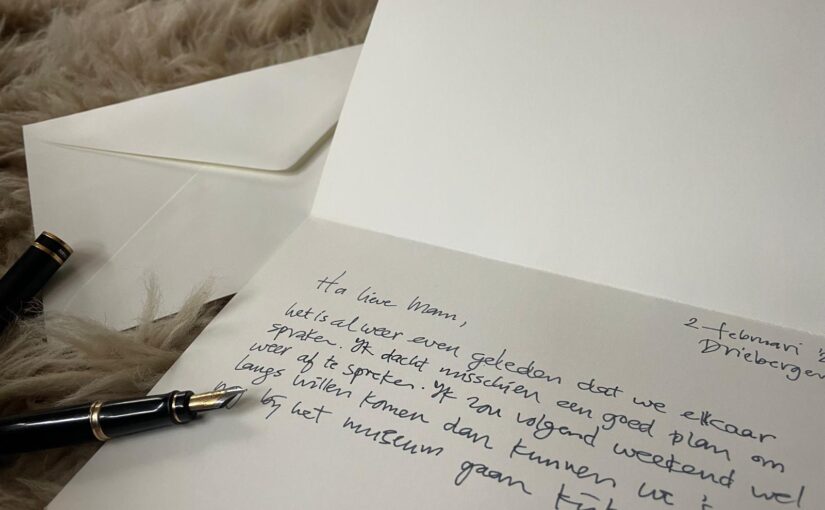 2 februari '2
Driebergen
Ha lieve Mam,
het is al weer even geleden dat we elkaar
spraken. Ik dacht misschien een goed plan om
weer af te spreken. Ik zou volgend weekend wel
langs willen komen dan kunnen we 's
bij het museum gaan